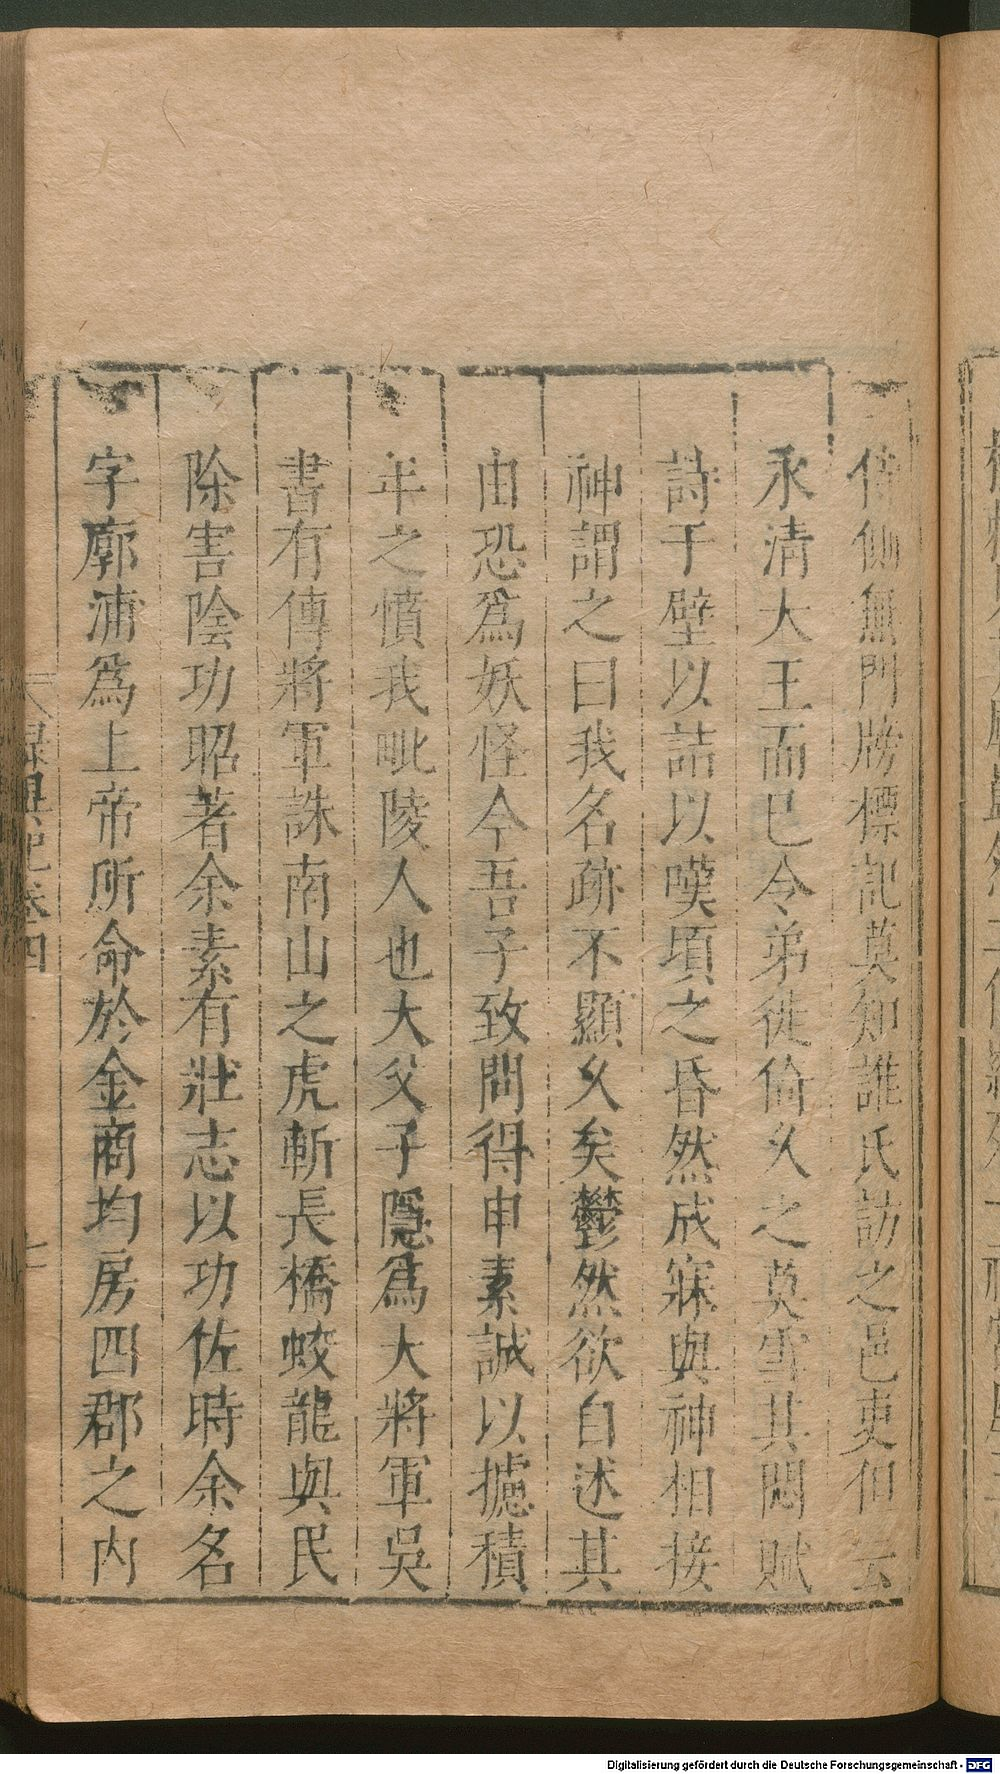 侍側無門牓標記莫知誰氏訪之邑吏但云
永清大王而已令弟徙倚久之莫雪其悶賦
詩于壁以詰以嘆頃之昏然成寐與神相接
神謂之曰我名跡不顯久矣鬱然欲自述其
由恐爲妖怪今吾子致問得申素誠以攄積
年之憤我毗陵人也大父子隱爲大將軍吳
書有傳將軍誅南山之虎斬長橋蛟龍與民
除害陰功昭著余素有壯志以功佐時余名
字廓浦爲上帝所命於金商均房四郡之内
錄異記卷四
七
Digitalisierung gefördert durch die Deutsche Forschungsgemeinschaft - DFG